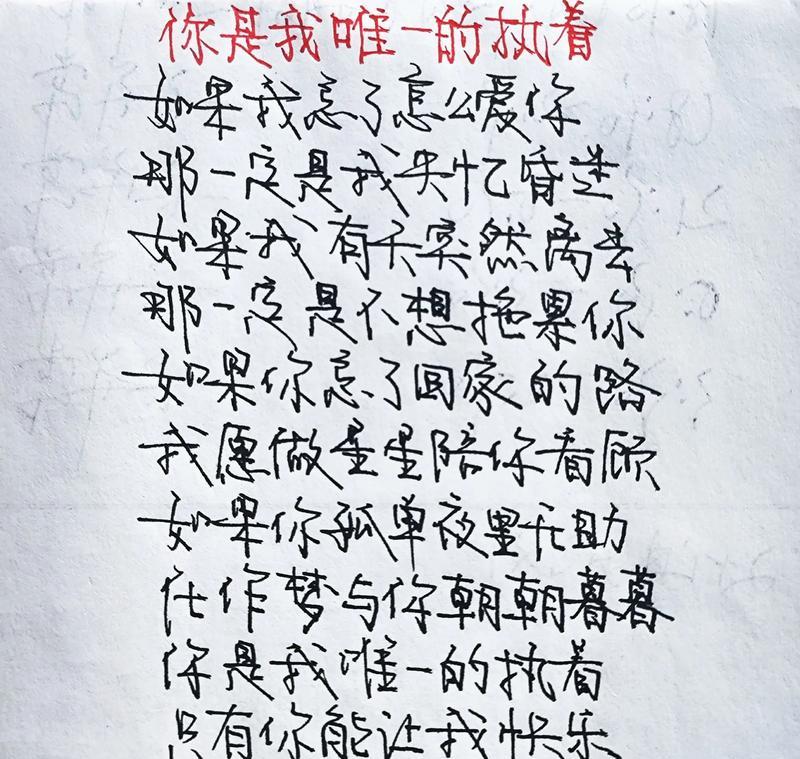 你是我唯一的执着
如果我忘了怎么爱你
那一定是我失忆昏迷
如果我有天突然离去
那一定是不想拖累你
如果你忘了回家的路
我愿做星星陪你看顾
如果你孤单夜里无助
任作梦与你朝朝暮暮
你是我唯一的执着
只有你能让我快乐